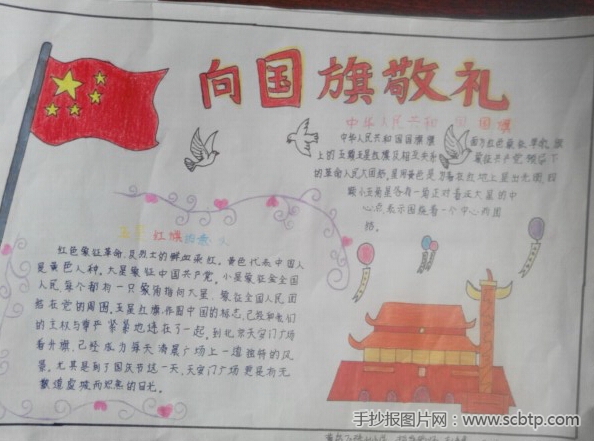 向国旗敬礼
中华人民共和 国 国旗
中华人民共和国国旗旗
面为红色象征 革命,旗
上的五颗五星 及相互关系
象征共产党 领导下
的革命人民大团结,星用黄色是 为着在红地上显出光明,四
颗小五角星各有一角正对着 大星的中
心点,表示围绕着一个中心而团
结。
五星 红旗的意义
红色象征革命,及烈士的鲜血染红。黄色代表中国人
是黄色人种。大星象征中国共产党。小星象征全国
人民 每个都有一只 角指向大星。象征全国人民团
结在党的周围,五星红旗,作为中国的标志,已经和我们
的主权与尊严 紧紧地连在了一起,到北京天安门广场
看升旗,已经成为每天清晨广场上一道独特的风
景。尤其是到了国庆节这一天,天安门广场更是有无
数道虔诚而炽热的目光。
手抄报图片网·www.scbtp.com